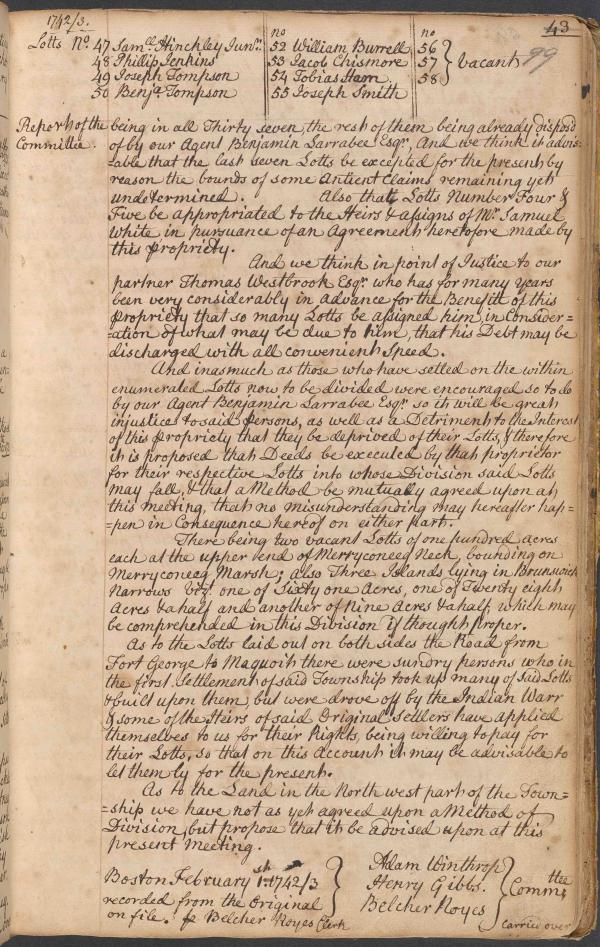 1742/3.
43
99
Lotts No. 47 Samll. Hinckley Junr.
48 Phillip Jenkins
49 Joseph Tompson
50 Benja. Tompson
no
52 William Burrell
53 Jacob Chismore
54 Tobias Ham
55 Joseph Smith
no
56
57 } Vacant
58
Report of the
Committee.
being in all Thirty seven, the rest of them being already disposd
of by our Agent Benjamin Larrabee Esqr., And we think it advis=
=able that the last seven Lotts be excepted for the present by
reason the bounds of some Antient Claims remaining yet
undetermined. Also that Lotts Number Four &
Five be appropriated to the Heirs & assigns of Mr. Samuel
White in pursuance of an Agreement heretofore made by
this Propriety.
And we think in point of Justice to our
partner Thomas Westbrook Esqr. who has for many years
been very considerably in advance for the Benefitt of this
Propriety that so many Lotts be assigned him, in Consider=
=ation of what may be due to him, that his Debt may be
discharged with all convenient Speed.
And inasmuch as those who have setled on the within
enumerated Lotts now to be divided were encouraged so to do
by our Agent Benjamin Larrabee Esqr. so it will be great
injustice to said Persons, as well as a Detriment to the Interest
of this Propriety that they be deprived of their Lotts, & therefore
it is proposed that Deeds be executed by that proprietor
for their respective Lotts into whose Division said Lotts
may fall, & that a Method be mutually agreed upon at
this meeting, that no misunderstanding may hereafter hap=
=pen in Consequence hereof on either part.
There being two vacant Lotts of one hundred acres
each at the upper end of Merryconeeg Neck, bounding on
Merryconeeg Marsh; also Three Islands lying in Brunswick
Narrows vizt. one of Sixty one Acres, one of Twenty eight
Acres & a half and another of Nine Acres & a half which may
be comprehended in this Division if thought proper.
As to the Lotts laid out on both sides the Road from
Fort George to Maquoit there were sundry persons who in
the first Settlement of said Township took up many of said Lotts
& built upon them, but were drove off by the Indian Warr
& some of the Heirs of said Original Settlers have applied
themselves to us for their Rights, being willing to pay for
their Lotts, so that on this Account it may be advisable to
let them ly for the present.
As to the Land in the North west part of the Town=
=ship we have not as yet agreed upon a Method of
Division, but propose that it be advised upon at this
present Meeting.
Boston February 1st. 1742/3
recorded from the Original
on file. pr Belcher Noyes Clerk
Adam Winthrop
Henry Gibbs.
Belcher Noyes
} Commttee
Carried over